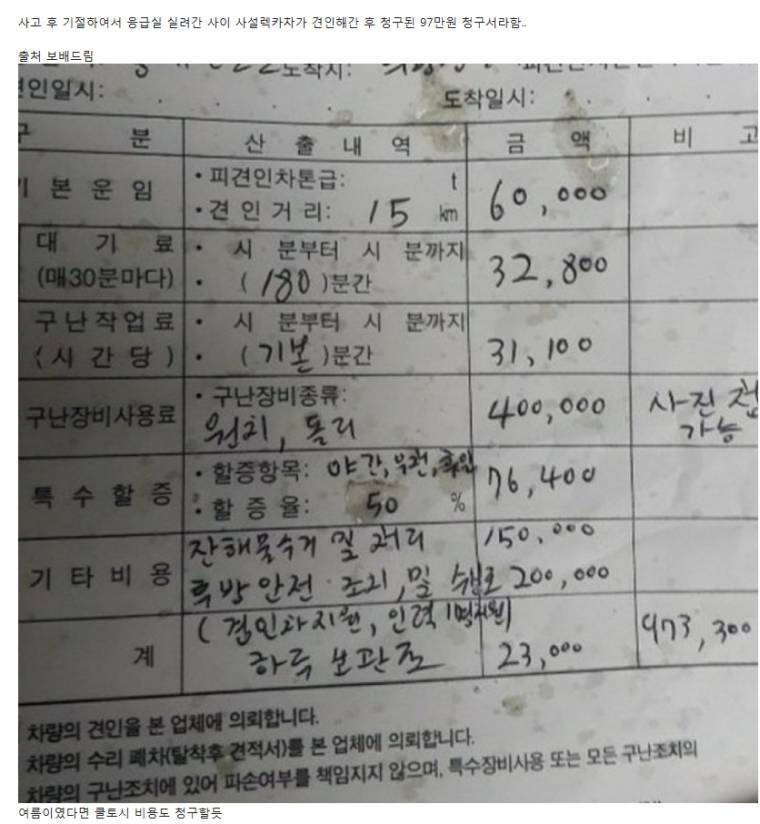 사고 후 기절하여서 응급실 실려간 사이 사설렉카차가 견인해간 후 청구된 97만원 청구서라함..
출처 보배드림
도착시:
견인일시: 도착일시:
구 분 산 출 내 역 금 액 비 고
기 본 운 임 • 피견인차톤급: t 60,000
• 견 인 거 리: 15 km
대 기 료 • 시 분부터 시 분까지 32,800
(매30분마다) • (180)분간
구 난 작 업 료 • 시 분부터 시 분까지 31,100
(시 간 당) • (기본)분간
구난장비사용료 • 구난장비종류: 400,000 사진 첨
윈치, 돌리 가능
특 수 할 증 • 할증항목: 야간, 우천, 휴일 76,400
• 할 증 율: 50 %
기 타 비 용 잔해물수거 및 처리 150,000
후방안전 조치, 및 수신호 200,000
(견인차지원, 인력 1명지원)
계 하루 보관료 23,000 973,300
차량의 견인을 본 업체에 의뢰합니다.
차량의 수리 폐차(탈착후 견적서)를 본 업체에 의뢰합니다.
차량의 구난조치에 있어 파손여부를 책임지지 않으며, 특수장비사용 또는 모든 구난조치의
여름이였다면 쿨토시 비용도 청구할듯